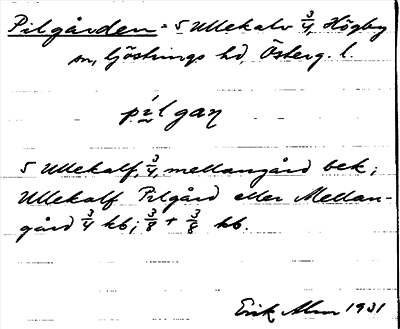 Pilgården = 5 Ullekalv 3/4, Högby
sn, Göstrings hd, Österg. l.
pílgan
5 Ullekalf, 3/4, mellangård bek;
Ullekalf Pilgård eller Mellan-
gård 3/4 hb; 3/8 + 3/8 hb.
Erik Alm 1931